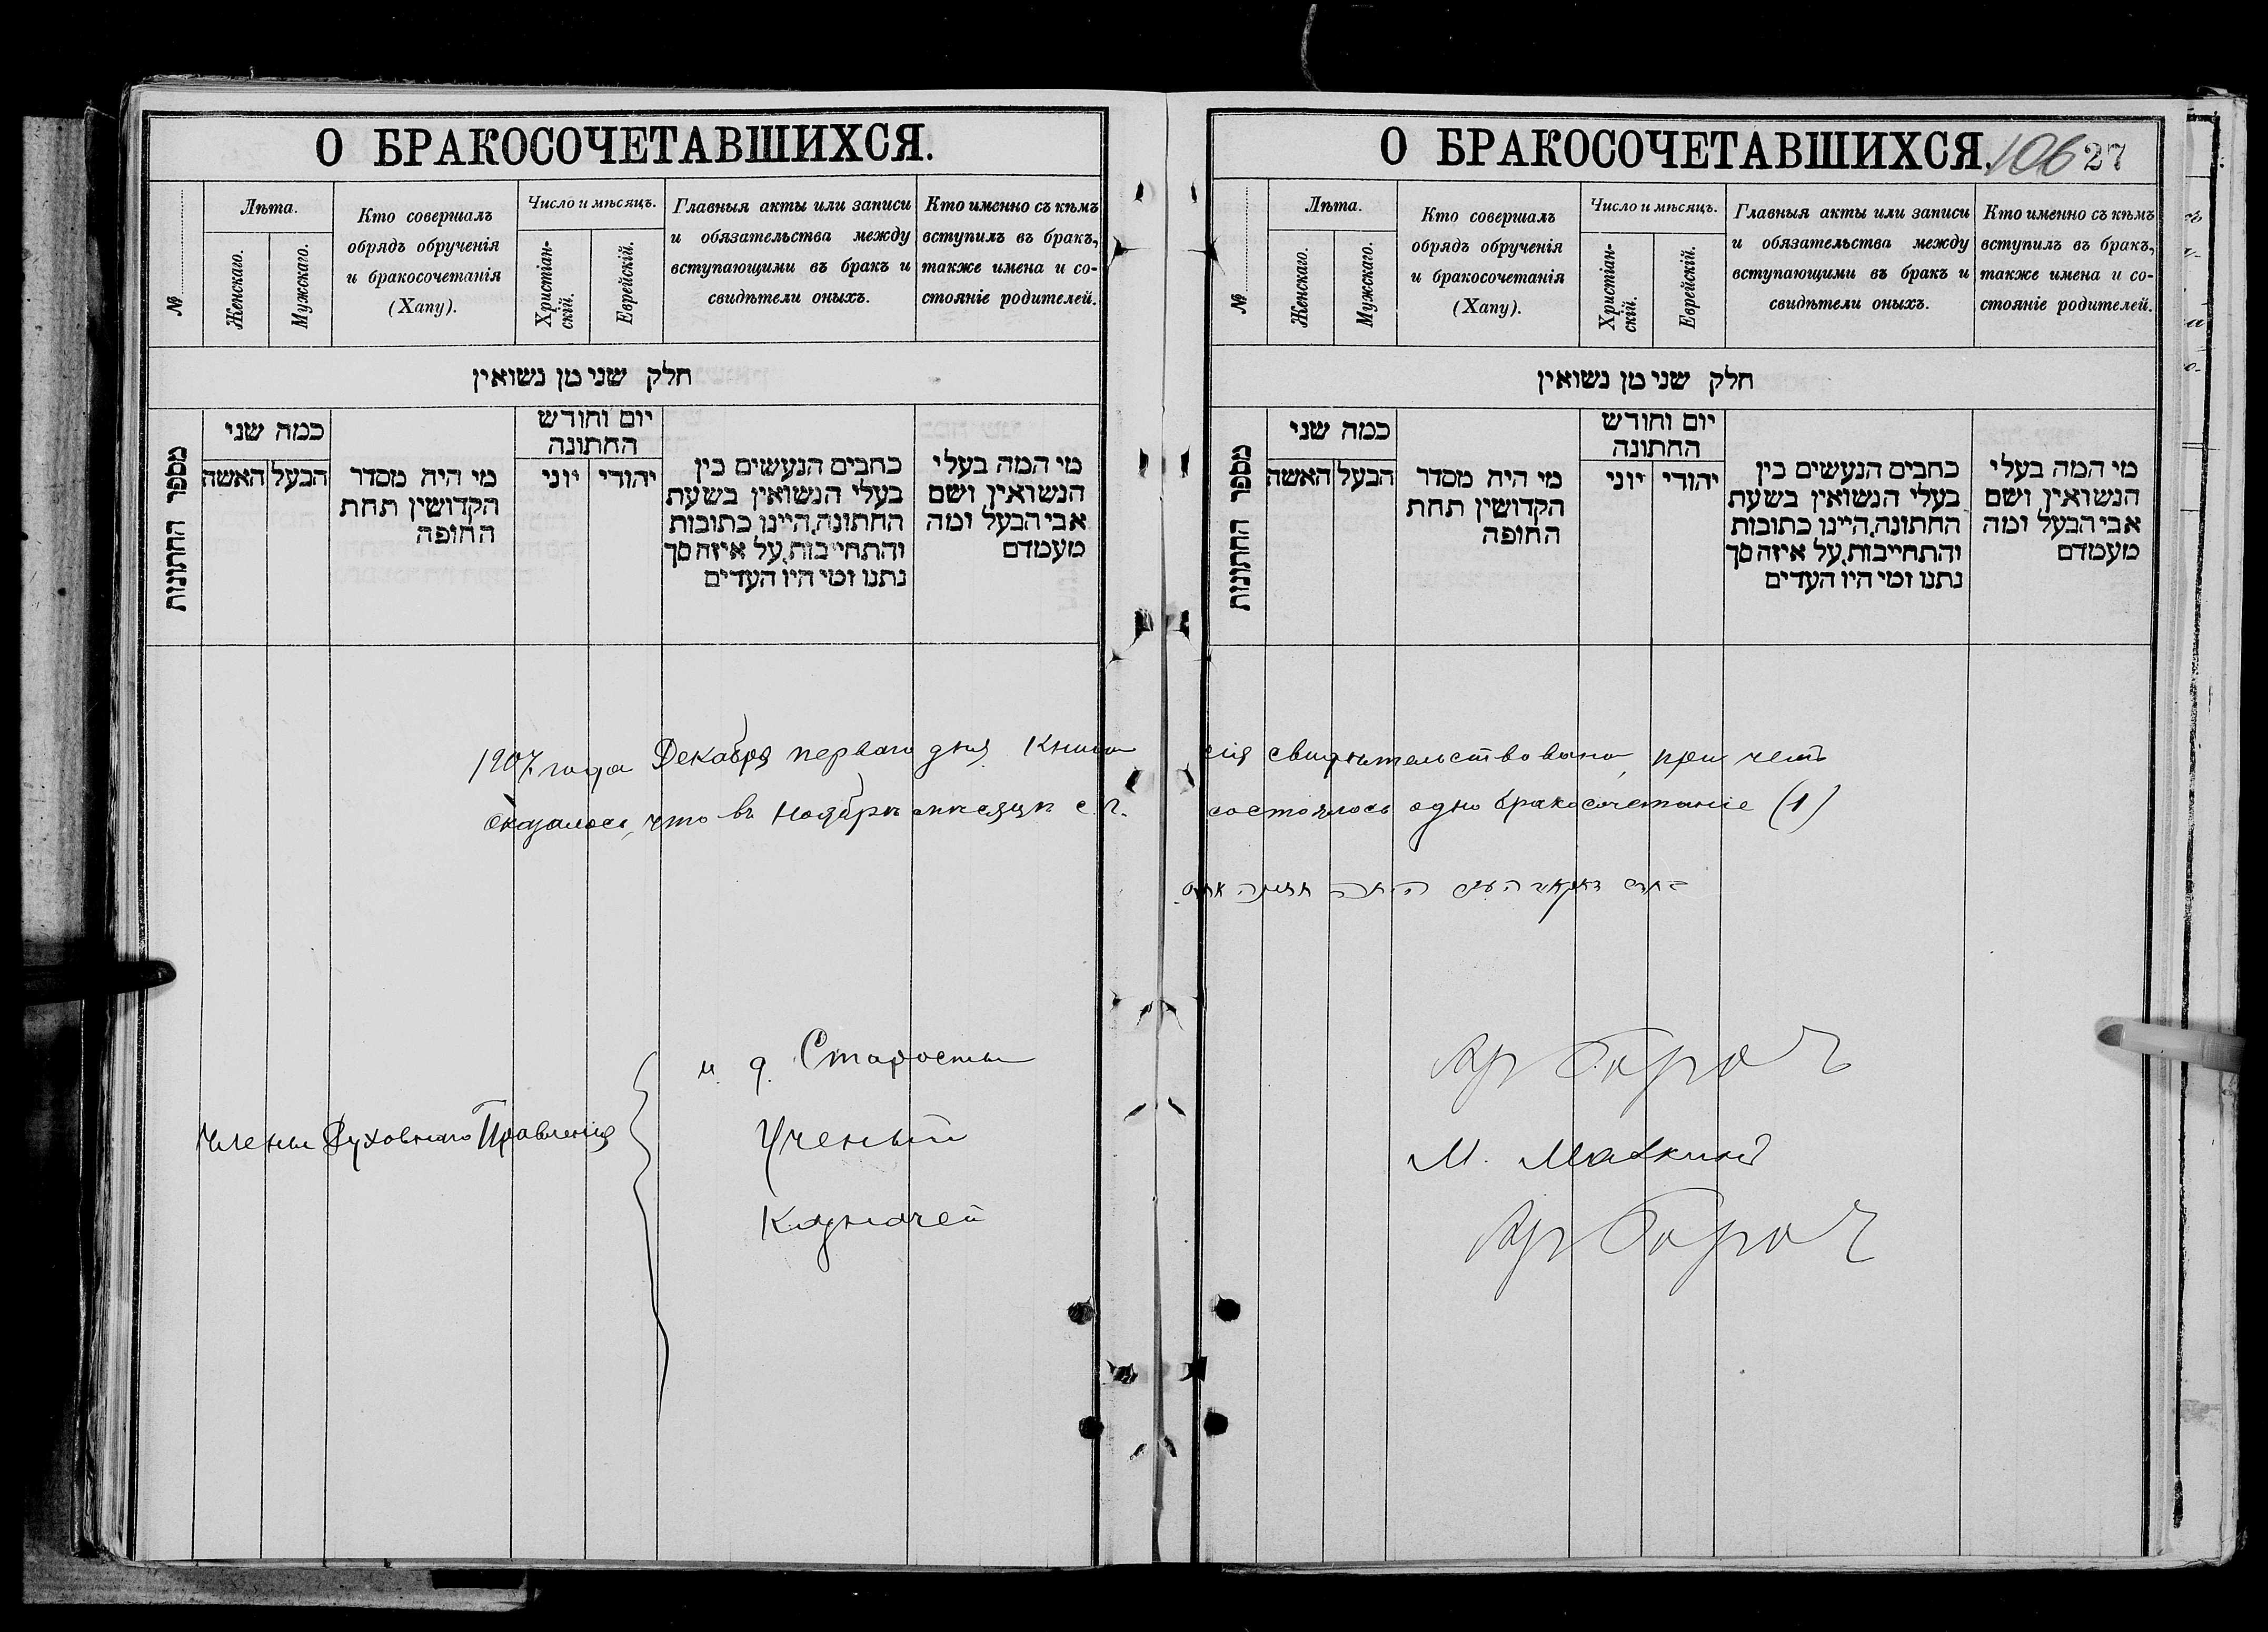 О БРАКОСОЧЕТАВШИХСЯ.
№
Лѣта.
Женскаго.
Мужскаго.
Кто совершалъ
обрядъ обрученія
и бракосочетанія
(Хапу).
Число и мѣсяцъ.
Христіан-
скій.
Еврейскій.
Главныя акты или записи
и обязательства между
вступающими въ бракъ и
свидѣтели оныхъ.
Кто именно съ кѣмъ
вступилъ въ бракъ,
также имена и со-
стояніе родителей.
חלק שני מן נשואין
מספר החתונות
כמה שני
הבעל האשה
מי היה מסדר
הקדושין תחת
החופה
יום וחודש
החתונה
יהודי יוני
כתבים הנעשים בין
בעלי הנשואין בשעת
החתונה, היינו כתובות
והתחייבות, על איזה סך
נתנו ומי היו העדים
מי המה בעלי
הנשואין ושם
אבי הבעל ומה
מעמדם
1907 года Декабря перваго дня Книга
оказалось, что въ Ноябрѣ мѣсяцѣ с.г.
Члены Духовнаго Правленія
и. д. Старосты
Ученый
Казначей
О БРАКОСОЧЕТАВШИХСЯ.
106 27
№
Лѣта.
Женскаго.
Мужскаго.
Кто совершалъ
обрядъ обрученія
и бракосочетанія
(Хапу).
Число и мѣсяцъ.
Христіан-
скій.
Еврейскій.
Главныя акты или записи
и обязательства между
вступающими въ бракъ и
свидѣтели оныхъ.
Кто именно съ кѣмъ
вступилъ въ бракъ,
также имена и со-
стояніе родителей.
חלק שני מן נשואין
מספר החתונות
כמה שני
הבעל האשה
מי היה מסדר
הקדושין תחת
החופה
יום וחודש
החתונה
יהודי יוני
כתבים הנעשים בין
בעלי הנשואין בשעת
החתונה, היינו כתובות
והתחייבות, על איזה סך
נתנו ומי היו העדים
מי המה בעלי
הנשואין ושם
אבי הבעל ומה
מעמדם
сія свидѣтельствована, при чемъ
состоялось одно бракосочетаніе (1)
М. Малкинъ